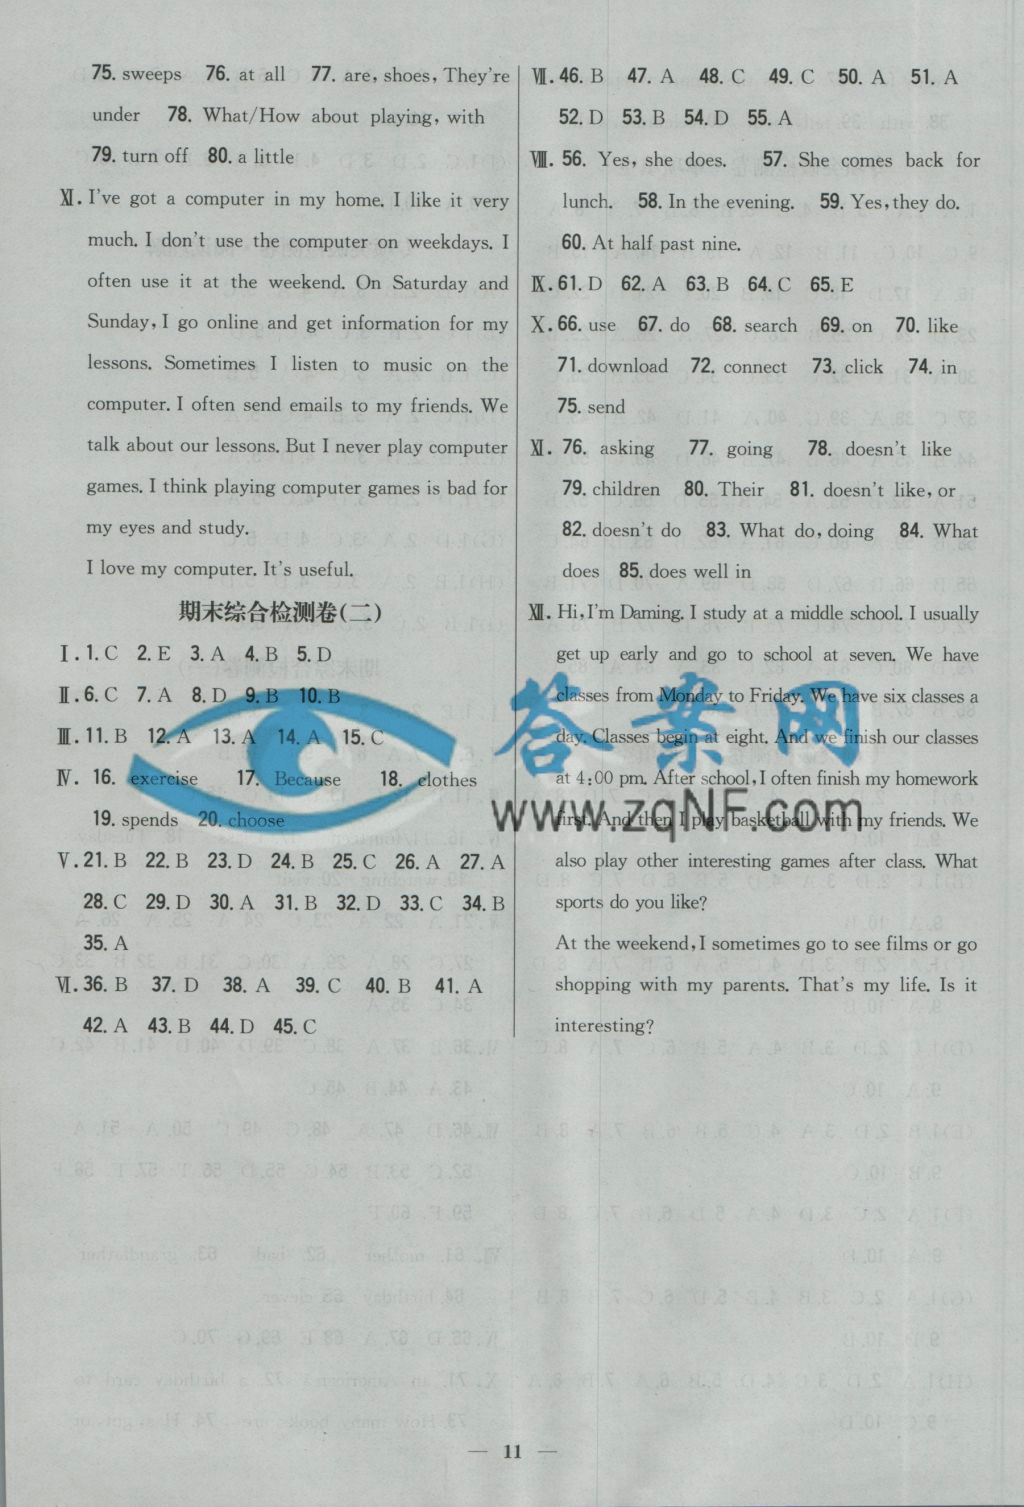 75. sweeps 76. at all 77. are, shoes, They're
under 78. What/How about playing, with
79. turn off 80. a little
Ⅺ. I've got a computer in my home. I like it very
much. I don't use the computer on weekdays. I
often use it at the weekend. On Saturday and
Sunday, I go online and get information for my
lessons. Sometimes I listen to music on the
computer. I often send emails to my friends. We
talk about our lessons. But I never play computer
games. I think playing computer games is bad for
my eyes and study.
I love my computer. It's useful.
期末综合检测卷(二)
Ⅰ. 1. C 2. E 3. A 4. B 5. D
Ⅱ. 6. C 7. A 8. D 9. B 10. B
Ⅲ. 11. B 12. A 13. A 14. A 15. C
Ⅳ. 16. exercise 17. Because 18. clothes
19. spends 20. choose
Ⅴ. 21. B 22. B 23. D 24. B 25. C 26. A 27. A
28. C 29. D 30. A 31. B 32. D 33. C 34. B
35. A
Ⅵ. 36. B 37. D 38. A 39. C 40. B 41. A
42. A 43. B 44. D 45. C
Ⅶ. 46. B 47. A 48. C 49. C 50. A 51. A
52. D 53. B 54. D 55. A
Ⅷ. 56. Yes, she does. 57. She comes back for
lunch. 58. In the evening. 59. Yes, they do.
60. At half past nine.
Ⅸ. 61. D 62. A 63. B 64. C 65. E
Ⅹ. 66. use 67. do 68. search 69. on 70. like
71. download 72. connect 73. click 74. in
75. send
Ⅺ. 76. asking 77. going 78. doesn't like
79. children 80. Their 81. doesn't like, or
82. doesn't do 83. What do, doing 84. What
does 85. does well in
Ⅻ. Hi, I'm Daming. I study at a middle school. I usually
get up early and go to school at seven. We have
classes from Monday to Friday. We have six classes a
day. Classes begin at eight. And we finish our classes
at 4:00 pm. After school, I often finish my homework
first. And then I play basketball with my friends. We
also play other interesting games after class. What
sports do you like?
At the weekend, I sometimes go to see films or go
shopping with my parents. That's my life. Is it
interesting?
答案网
www.zqNF.com
— 11 —